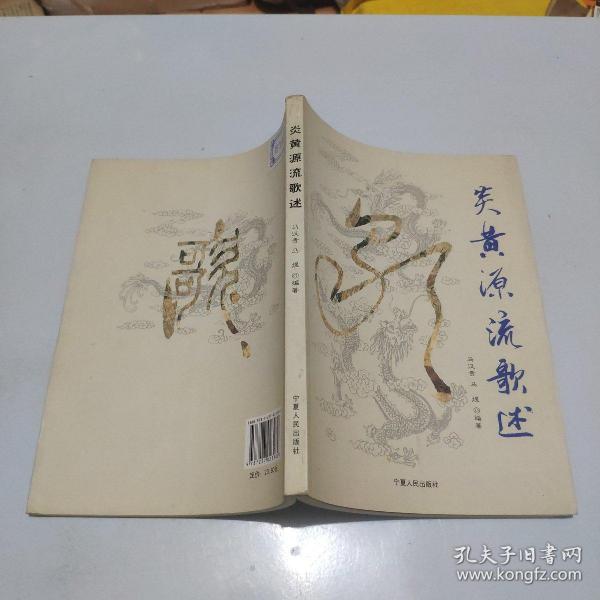 炎黄源流歌述
马汉青 马煜◎编著
宁夏人民出版社
炎黄源流歌述
马汉青 马煜◎编著
宁夏人民出版社
歌
孔夫子旧书网
www.kongfz.com